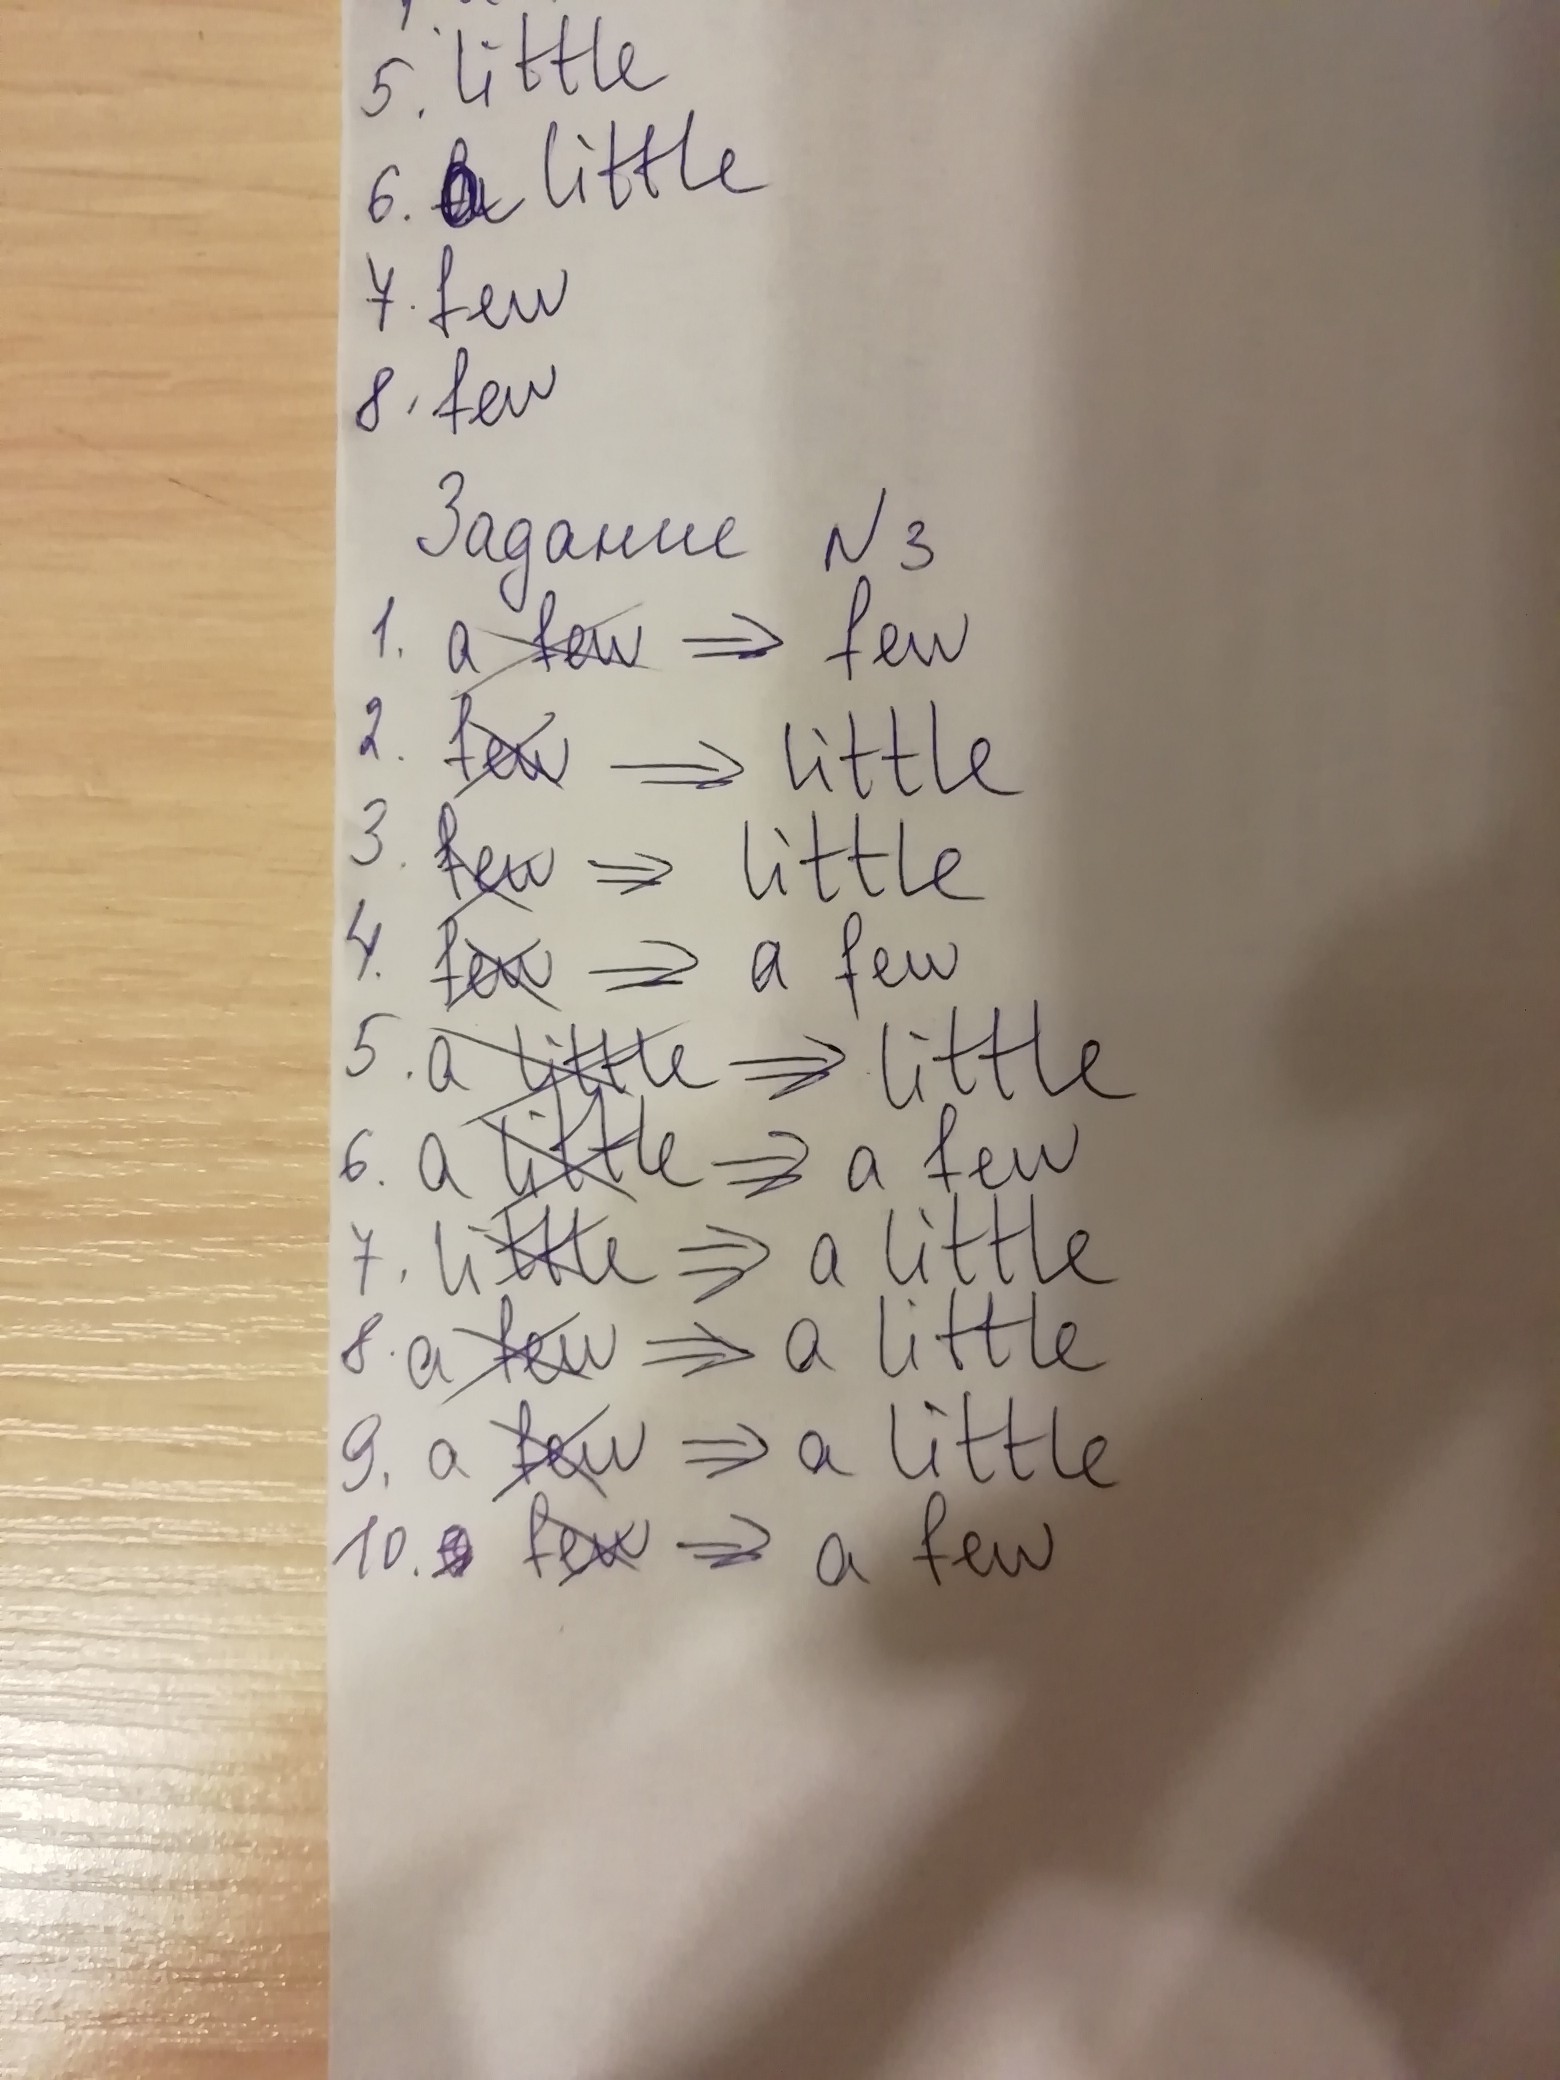 5. little
6. a little
7. few
8. few
Задание N 3
1. a few ⇒ few
2. few ⇒ little
3. few ⇒ little
4. few ⇒ a few
5. a little ⇒ little
6. a little ⇒ a few
7. little ⇒ a little
8. a few ⇒ a little
9. a few ⇒ a little
10. few ⇒ a few